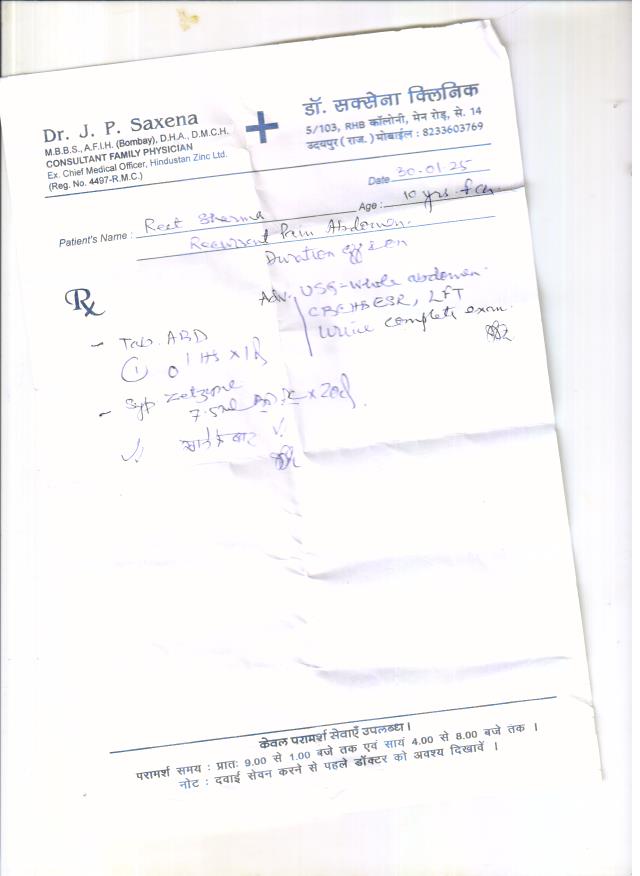 Dr. J. P. Saxena
M.B.B.S., A.F.I.H. (Bombay), D.H.A., D.M.C.H.
CONSULTANT FAMILY PHYSICIAN
Ex. Chief Medical Officer, Hindustan Zinc Ltd.
(Reg. No. 4497-R.M.C.)
डॉ. सक्सेना क्लिनिक
5/103, RHB कॉलोनी, मेन रोड़, से. 14
उदयपुर ( राज. ) मोबाईल : 8233603769
Date 30-01-25
Age : 10 yrs.
Patient's Name : Reet Sharma
Recurrent Pain Abdomen.
Duration
Adv. USG-Whole abdomen.
ESR, LFT
Urine complete exam.
Rx
- Tab. ABD
1
- Syp
7.5ml x 20d
खाने के बाद
केवल परामर्श सेवाएँ उपलब्ध ।
परामर्श समय : प्रातः 9.00 से 1.00 बजे तक एवं सायं 4.00 से 8.00 बजे तक ।
नोट : दवाई सेवन करने से पहले डॉक्टर को अवश्य दिखावें ।